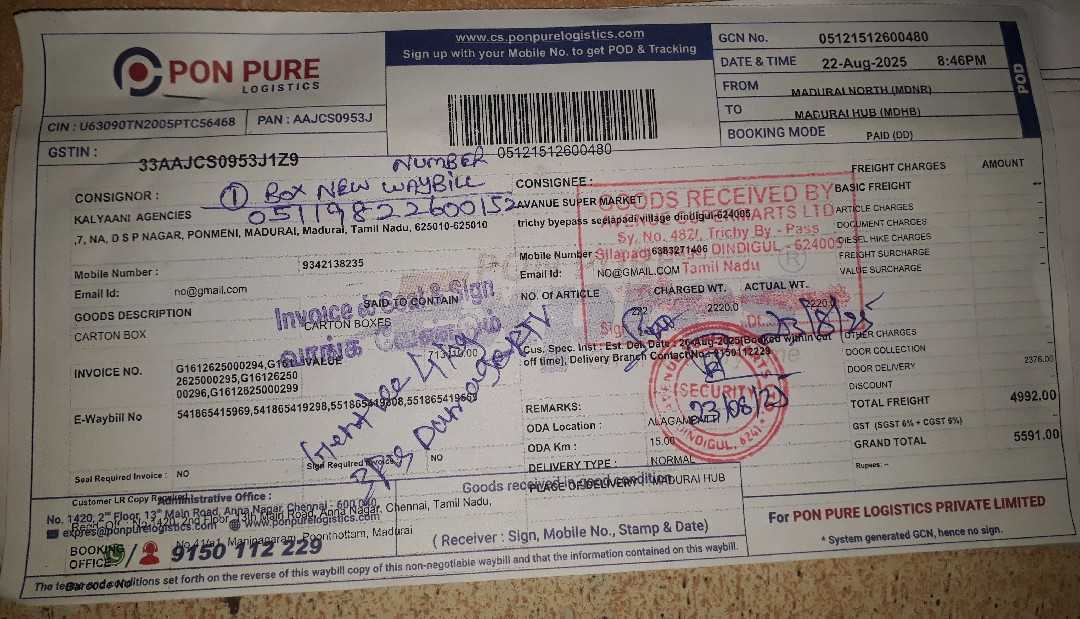 PON PURE
LOGISTICS
www.cs.ponpurelogistics.com
Sign up with your Mobile No. to get POD & Tracking
GCN No. 05121512600480
DATE & TIME 22-Aug-2025 8:46PM
FROM MADURAI NORTH (MDNR)
TO MADURAI HUB (MDHB)
BOOKING MODE PAID (DD)
POD
CIN : U63090TN2005PTC56468 PAN : AAJCS0953J
GSTIN : 33AAJCS0953J1Z9
05121512600480
NUMBER
① BOX NEW WAYBILL
05119822600152
CONSIGNOR :
KALYAANI AGENCIES
,7, NA, D S P NAGAR, PONMENI, MADURAI, Madurai, Tamil Nadu, 625010-625010
Mobile Number : 9342138235
Email Id: no@gmail.com
GOODS DESCRIPTION SAID TO CONTAIN
CARTON BOX CARTON BOXES
Invoice ல் Seal & Sign
வாங்க வேண்டும்
INVOICE NO. G1612625000294,G161
2625000295,G16126250
00296,G1612825000299
VALUE
E-Waybill No 541865415969,541865419298,551865419308,
Seal Required Invoice : NO Sign Required Invoice NO
3 Pcs Damage RTV
CONSIGNEE :
AVANUE SUPER MARKET
trichy byepass seelapadi village dindigul-624005
Mobile Number 6383271406
Email Id: NO@GMAIL.COM
NO. OF ARTICLE CHARGED WT. ACTUAL WT.
222 2220.0 2220.0
Cus. Spec. Inst : Est. Del. Date : 26-Aug-2025(Booked within cut
off time), Delivery Branch Contact No : 9150112229
GOODS RECEIVED BY
AVENUE SUPERMARTS LTD
Sy. No. 482/, Trichy By - Pass
DINDIGUL - 624005
Tamil Nadu
23/8/25
SECURITY
DINDIGUL, 624
23/08/25
REMARKS:
ODA Location :
ODA Km : 15.00
DELIVERY TYPE : NORMAL
PLACE OF DELIVERY : MADURAI HUB
Goods received in good condition
( Receiver : Sign, Mobile No., Stamp & Date)
FREIGHT CHARGES AMOUNT
BASIC FREIGHT --
ARTICLE CHARGES
DOCUMENT CHARGES
DIESEL HIKE CHARGES --
FREIGHT SURCHARGE
VALUE SURCHARGE
OTHER CHARGES
DOOR COLLECTION
DOOR DELIVERY 2376.00
DISCOUNT
TOTAL FREIGHT 4992.00
GST (SGST 6% + CGST 6%)
GRAND TOTAL 5591.00
Rupees: --
Customer LR Copy Required
Administrative Office :
No. 1420, 2nd Floor, 13th Main Road, Anna Nagar, Chennai - 600 040
Regd. Off : No 1420, 2nd Floor, 13th Main Road, Anna Nagar, Chennai, Tamil Nadu,
expres@ponpurelogistics.com www.ponpurelogistics.com
No 41/a1, Maninagaram, Poonthottam, Madurai
BOOKING
OFFICE
9150 112 229
For PON PURE LOGISTICS PRIVATE LIMITED
* System generated GCN, hence no sign.
The terms and conditions set forth on the reverse of this waybill copy of this non-negotiable waybill and that the information contained on this waybill.
Barcode No